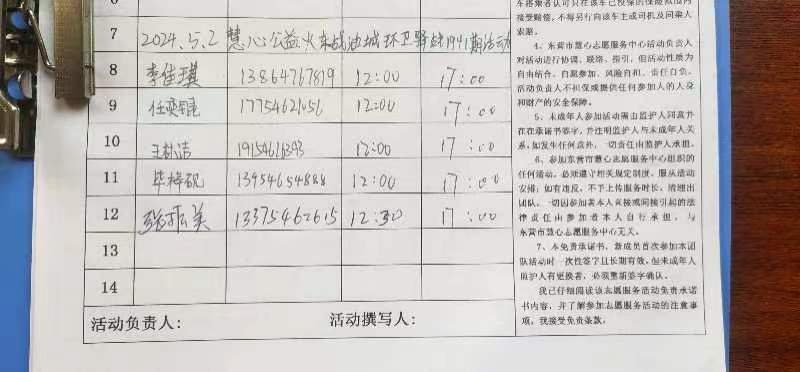 7 2024.5.2 慧心公益火车站油城环卫驿站1941期活动
8 李佳琪 13864767819 12:00 17:00
9 17754621056 12:00 17:00
10 12:00 17:00
11 13954654888 12:00 17:00
12 13375462615 12:30 17:00
13
14
活动负责人： 活动撰写人：
接受赔偿，不得另行向该车主或司机及同乘人
索赔。
4、东营市慧心志愿服务中心活动负责人
对活动进行协调、联络、指引，但活动性质为
自由结合、自愿参加、风险自担、责任自负。
活动负责人不担保或提供任何参加人的人身
和财产的安全保障。
5、未成年人参加活动需由监护人同意并
在在承诺书签字，并注明监护人与未成年人关
系，如发生任何意外，一切责任由监护人承担。
6、参加东营市慧心志愿服务中心组织的
任何活动，必须遵守相关规定制度，服从活动
安排；如有违反，不予上传服务时长，清理出
团队。一切因参加者本人直接或间接引起的法
律责任由参加者本人自行承担，与
东营市慧心志愿服务中心无关。
7、本免责承诺书，新成员首次参加本团
队活动时一次性签字且长期有效，但未成年人
监护人有更换者，必须重新签字确认。
我已仔细阅读该志愿服务活动免责承诺
书内容，并了解参加志愿服务活动的注意事
项，我接受免责条款。